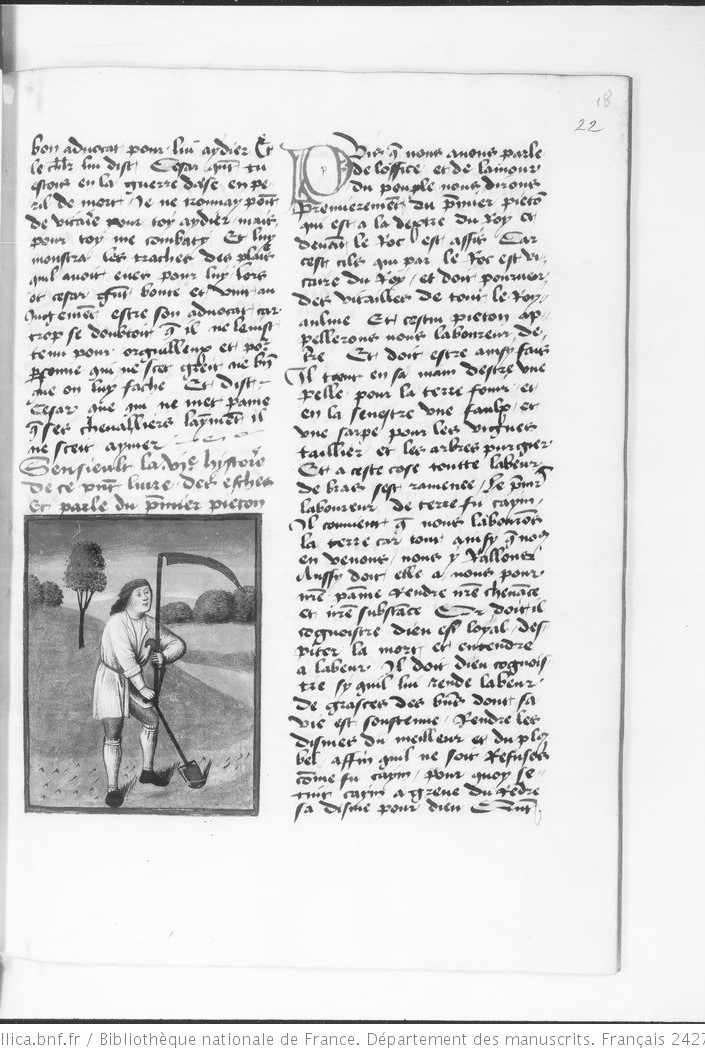 18
22
bon aduocat pour lui aydier Et
le chlr lui dist Cesar qnt tu
estois en la guerre dasie en pe
ril de mort Je ne trouuay point
de vicaire pour toy aydier mais
pour toy me combaty Et luy
monstra les traches des plaies
quil auoit eues pour luy lors
ot cesar gnt honte et vint au
Jugement estre son aduocat car
trop se doubtoit q il ne le
tenu pour orguilleux et por
psonne qui ne scet gre de bn
que on luy fache Et dist
Cesar que qui ne met paine
q ses cheualliers layment il
ne sceit aymer
Sensieult la histore
de ce pnt liure des esches
Et parle du pmier pieton
Puis q nous auons parle
de loffice et de lamour
du peuple nous dirons
premierement du pmier pieton
qui est a la dextre du Roy et
deuat le Roc est assis Car
cest cils qui par le Roc est vi
caire du Roy et doit pourueoir
des vitailles de tout le Roy
aulme Et cestui pieton ap
pellerons nous laboureur de
Et doit estre ainsy fais
Il tient en sa main destre vne
pelle pour la terre fouir et
en la senestre vne faulx et
vne sarpe pour les vignes
taillier et les arbres purgier
Et a ceste cose toutte labeur
de bras sest ramenee Le pmr
laboureur de terre fu cayin
Il conuient q nous labouros
la terre car tout ainsy q nous
en venons nous y Rallons
Aussy doit elle a nous pour
nre paine Rendre nre cheuace
et nre substace Or doit il
cognoistre dieu est loyal des
piter la mort et entendre
a labeur Il doit dieu cognois
tre sy quil lui rende labeur
de graces des bns dont sa
vie est soustenue Rendre les
dismes du meilleur et du plo
bel affin quil ne soit Refuses
come fu cayin pour quoy se
tint cayin a greue du Redre
sa disme pour dieu
llica.bnf.fr / Bibliothèque nationale de France. Département des manuscrits. Français 2427